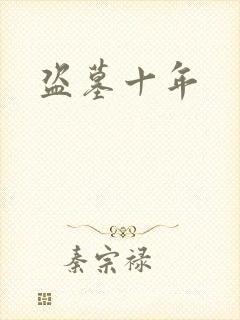 盗墓十年
秦宗禄